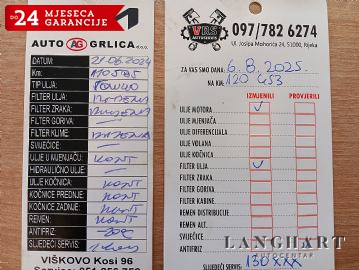 DO 24 MJESECA GARANCIJE
AUTO AG GRLICA d.o.o.
DATUM: 21.06.2024
Km: 110595
TIP ULJA:
FILTER ULJA:
FILTER ZRAKA:
FILTER GORIVA: —
FILTER KLIME:
SVJEĆICE: —
ULJE U MJENJAČU: KONT
HIDRAULIČNO ULJE: —
ULJE KOČNICA: KONT
KOČNICE PREDNJE: KONT
KOČNICE ZADNJE: KONT
REMEN: KONT
ANTIFRIZ: -30C
SLJEDEĆI SERVIS:
VIŠKOVO Kosi 96
VRS
AUTOSERVIS
097/782 6274
Ul. Josipa Mohorića 24, 51000, Rijeka
ZA VAS SMO DANA: 6.8.2025.
NA KM: 120 453
IZMJENILI PROVJERILI
ULJE MOTORA
ULJE MJENJAČA
ULJE DIFERENCIJALA
ULJE VOLANA
ULJE KOČNICA
FILTER ULJA
FILTER ZRAKA
FILTER GORIVA
FILTER KABINE
REMEN DISTRIBUCIJE
REMEN ALT.
SVJEĆICE
ANTIFRIZ
SLJEDEĆI SERVIS: 130xxx
LANGHART